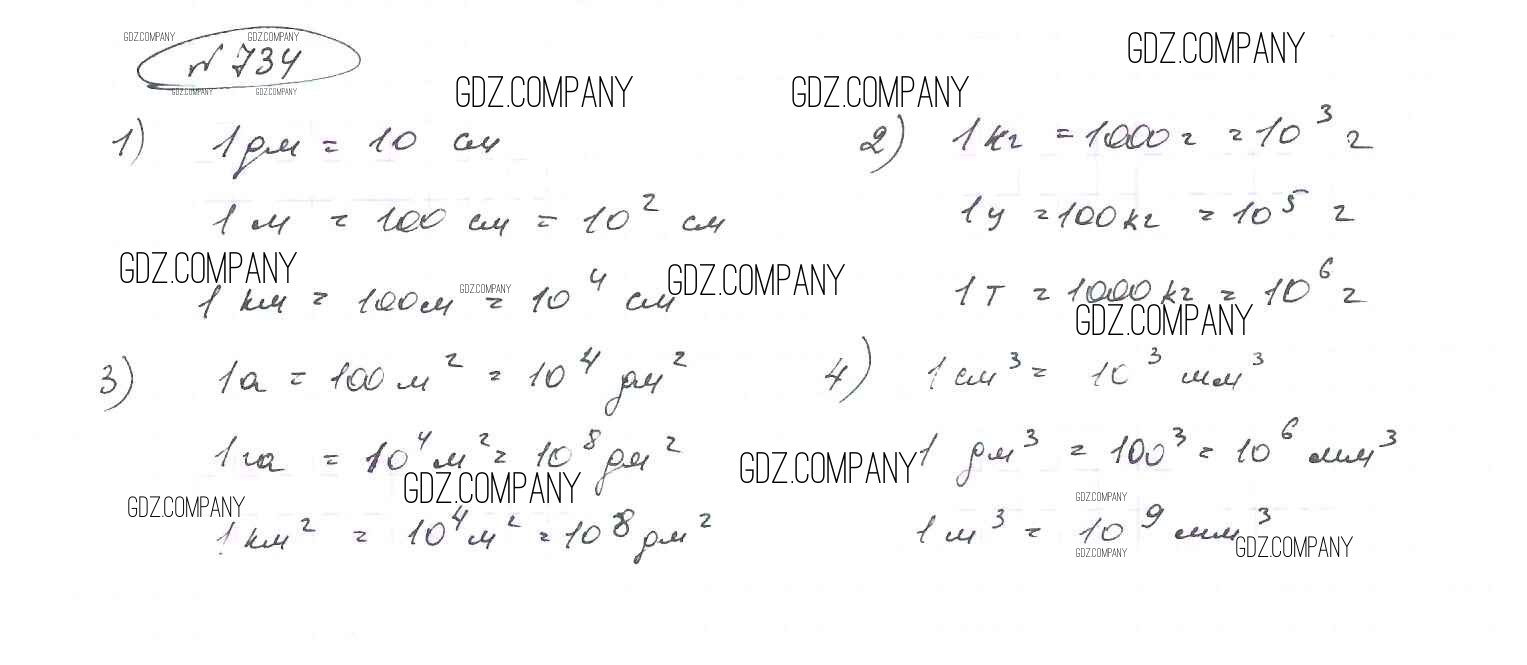 GDZ.COMPANY GDZ.COMPANY
№ 734
GDZ.COMPANY GDZ.COMPANY
GDZ.COMPANY
GDZ.COMPANY GDZ.COMPANY
1) 1 дм = 10 см
1 м = 100 см = 10² см
GDZ.COMPANY GDZ.COMPANY
1 км = 100м = 10⁴ см
GDZ.COMPANY
2) 1 кг = 1000 г = 10³ г
1 ц = 100 кг = 10⁵ г
1 т = 1000 кг = 10⁶ г
GDZ.COMPANY
3) 1а = 100 м² = 10⁴ дм²
1 га = 10⁴ м² = 10⁸ дм²
GDZ.COMPANY GDZ.COMPANY
1 км² = 10⁴ м² = 10⁸ дм²
4) 1 см³ = 10³ мм³
GDZ.COMPANY
1 дм³ = 100³ = 10⁶ мм³
GDZ.COMPANY
1 м³ = 10⁹ мм³
GDZ.COMPANY GDZ.COMPANY